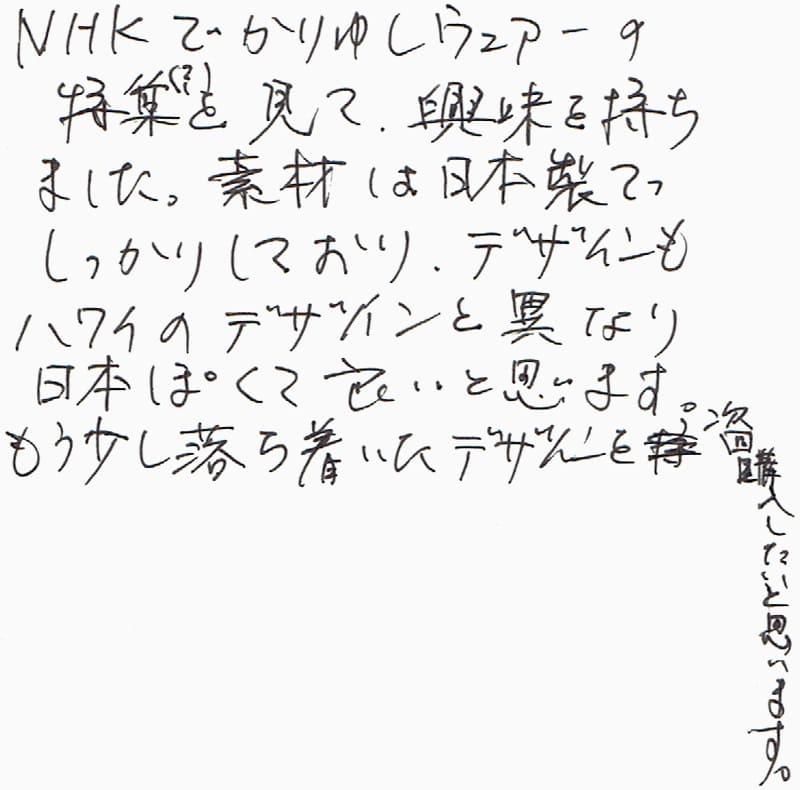 NHKでかりゆしウェアーの
特集(?)を見て、興味を持ち
ました。素材は日本製で
しっかりしており、デザインも
ハワイのデザインと異なり
日本ぽくて良いと思います。
もう少し落ち着いたデザインを
次回購入したいと思います。